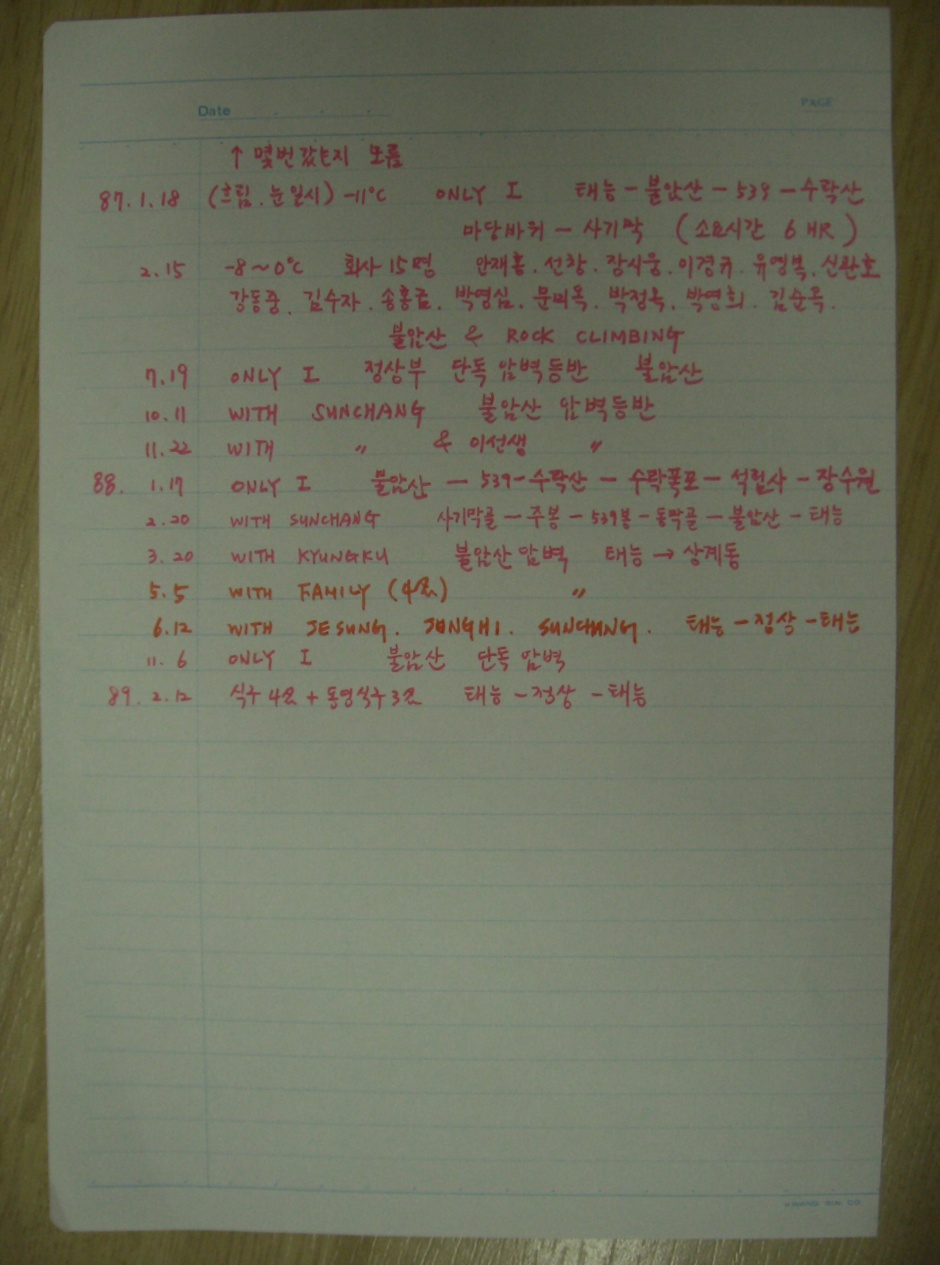 Date
PAGE
↑ 몇번갔는지 모름
87. 1. 18 (흐림. 눈일시) -11°C ONLY I 태능 - 불암산 - 539 - 수락산
마당바위 - 사기막 (소요시간 6 HR)
2. 15 -8 ~ 0°C 회사 15명 안재홍. 선창. 장시웅. 이경규. 유영복. 신완호
강동중. 김수자. 박영심. 문미옥. 박정옥. 박연희. 김순옥.
불암산 & ROCK CLIMBING
7. 19 ONLY I 정상부 단독 암벽등반 불암산
10. 11 WITH SUNCHANG 불암산 암벽등반
11. 22 WITH 〃 & 이선생 〃
88. 1. 17 ONLY I 불암산 - 539 - 수락산 - 수락폭포 - 석림사 - 장수원
2. 20 WITH SUNCHANG 사기막골 - 주봉 - 539봉 - 동막골 - 불암산 - 태능
3. 20 WITH KYUNGKU 불암산 암벽 태능 → 상계동
5. 5 WITH FAMILY (4人) 〃
6. 12 WITH JESUNG. JUNGHI. SUNCHANG. 태능 - 정상 - 태능
11. 6 ONLY I 불암산 단독 암벽
89. 2. 12 식구 4人 + 동영식구 3人 태능 - 정상 - 태능